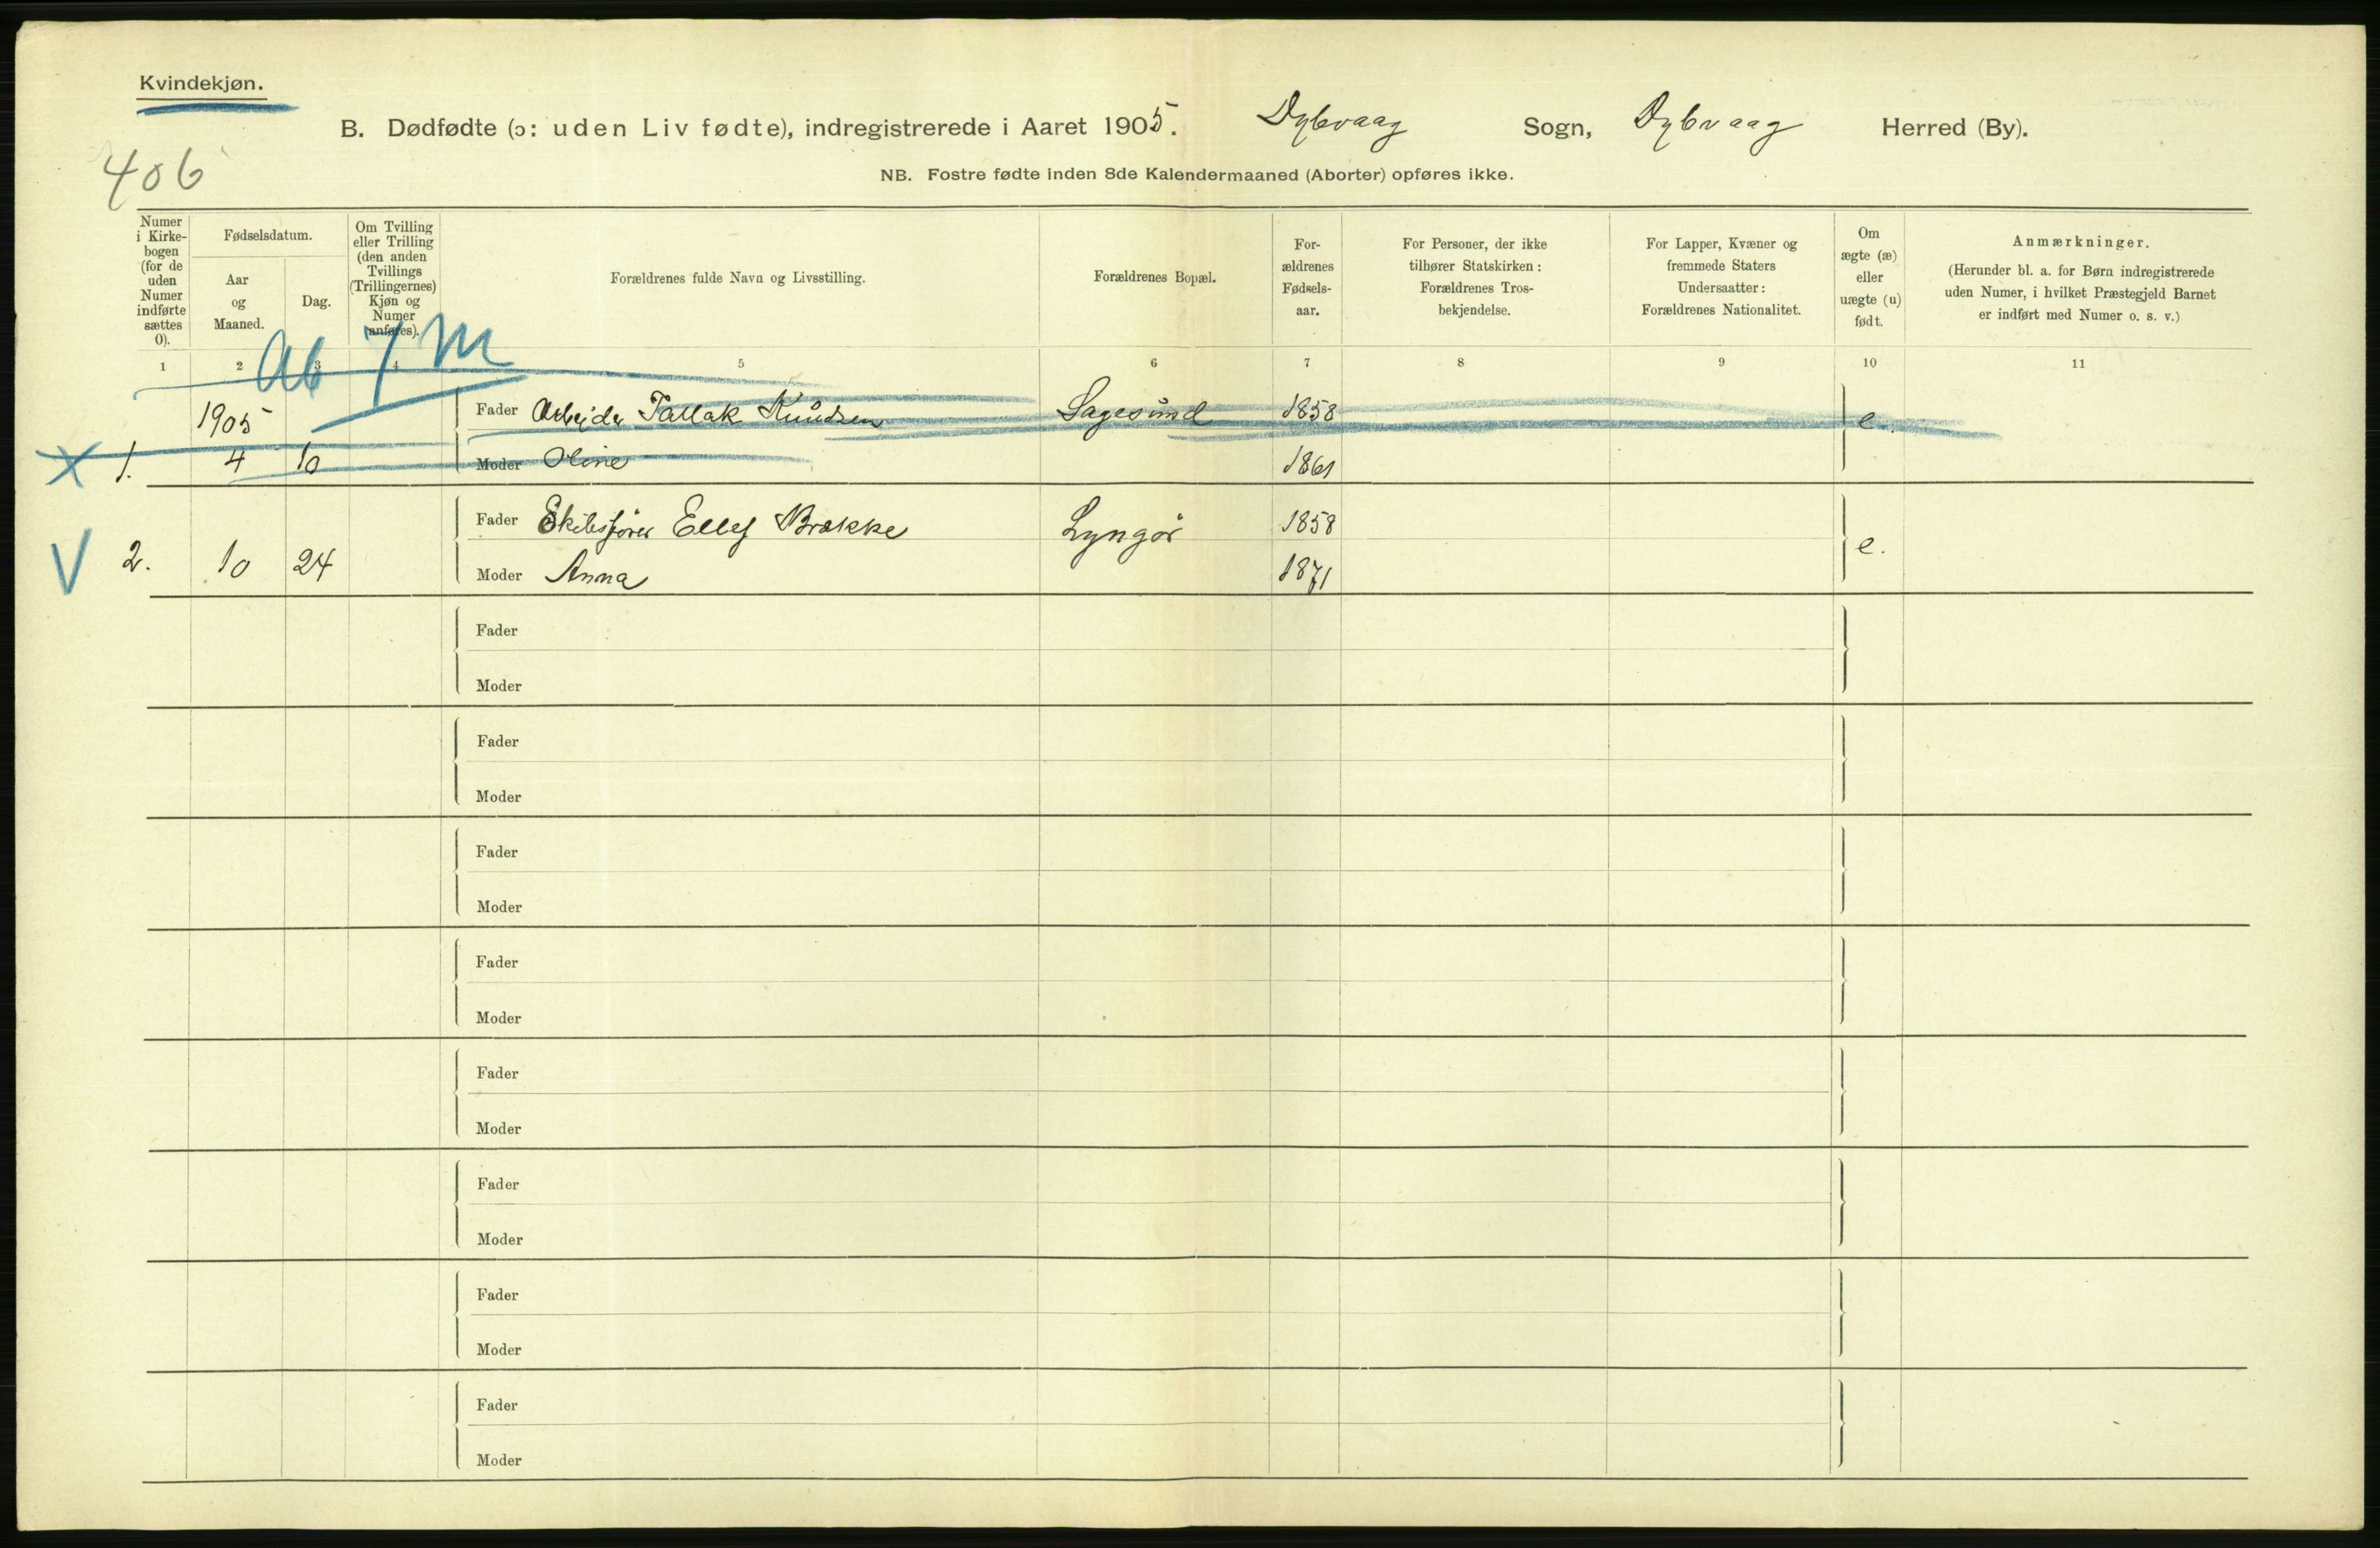 Kvindekjøn.
B. Dødfødte (ɔ: uden Liv fødte), indregistrerede i Aaret 1905. Dybvaag Sogn, Dybvaag Herred (By).
406
NB. Fostre fødte inden 8de Kalendermaaned (Aborter) opføres ikke.
Numer i Kirke-bogen (for de uden Numer indførte sættes 0).
Fødselsdatum.
Aar og Maaned.
Dag.
Om Tvilling eller Trilling (den anden Tvillings (Trillingernes) Kjøn og Numer anføres).
Forældrenes fulde Navn og Livsstilling.
Forældrenes Bopæl.
For-ældrenes Fødsels-aar.
For Personer, der ikke tilhører Statskirken: Forældrenes Tros-bekjendelse.
For Lapper, Kvæner og fremmede Staters Undersaatter: Forældrenes Nationalitet.
Om ægte (æ) eller uægte (u) født.
Anmærkninger.
(Herunder bl. a. for Børn indregistrerede uden Numer, i hvilket Præstegjeld Barnet er indført med Numer o. s. v.)
1 2 3 4 5 6 7 8 9 10 11
Ab 7 M
1905 Fader Arbejder Tallak Knudsen Sagesund 1858 e.
X 1. 4 10 Moder Oline 1861
Fader Skibsfører Ellef Brække Lyngør 1858
V 2. 10 24 Moder Anna 1871 e.
Fader
Moder
Fader
Moder
Fader
Moder
Fader
Moder
Fader
Moder
Fader
Moder
Fader
Moder
Fader
Moder